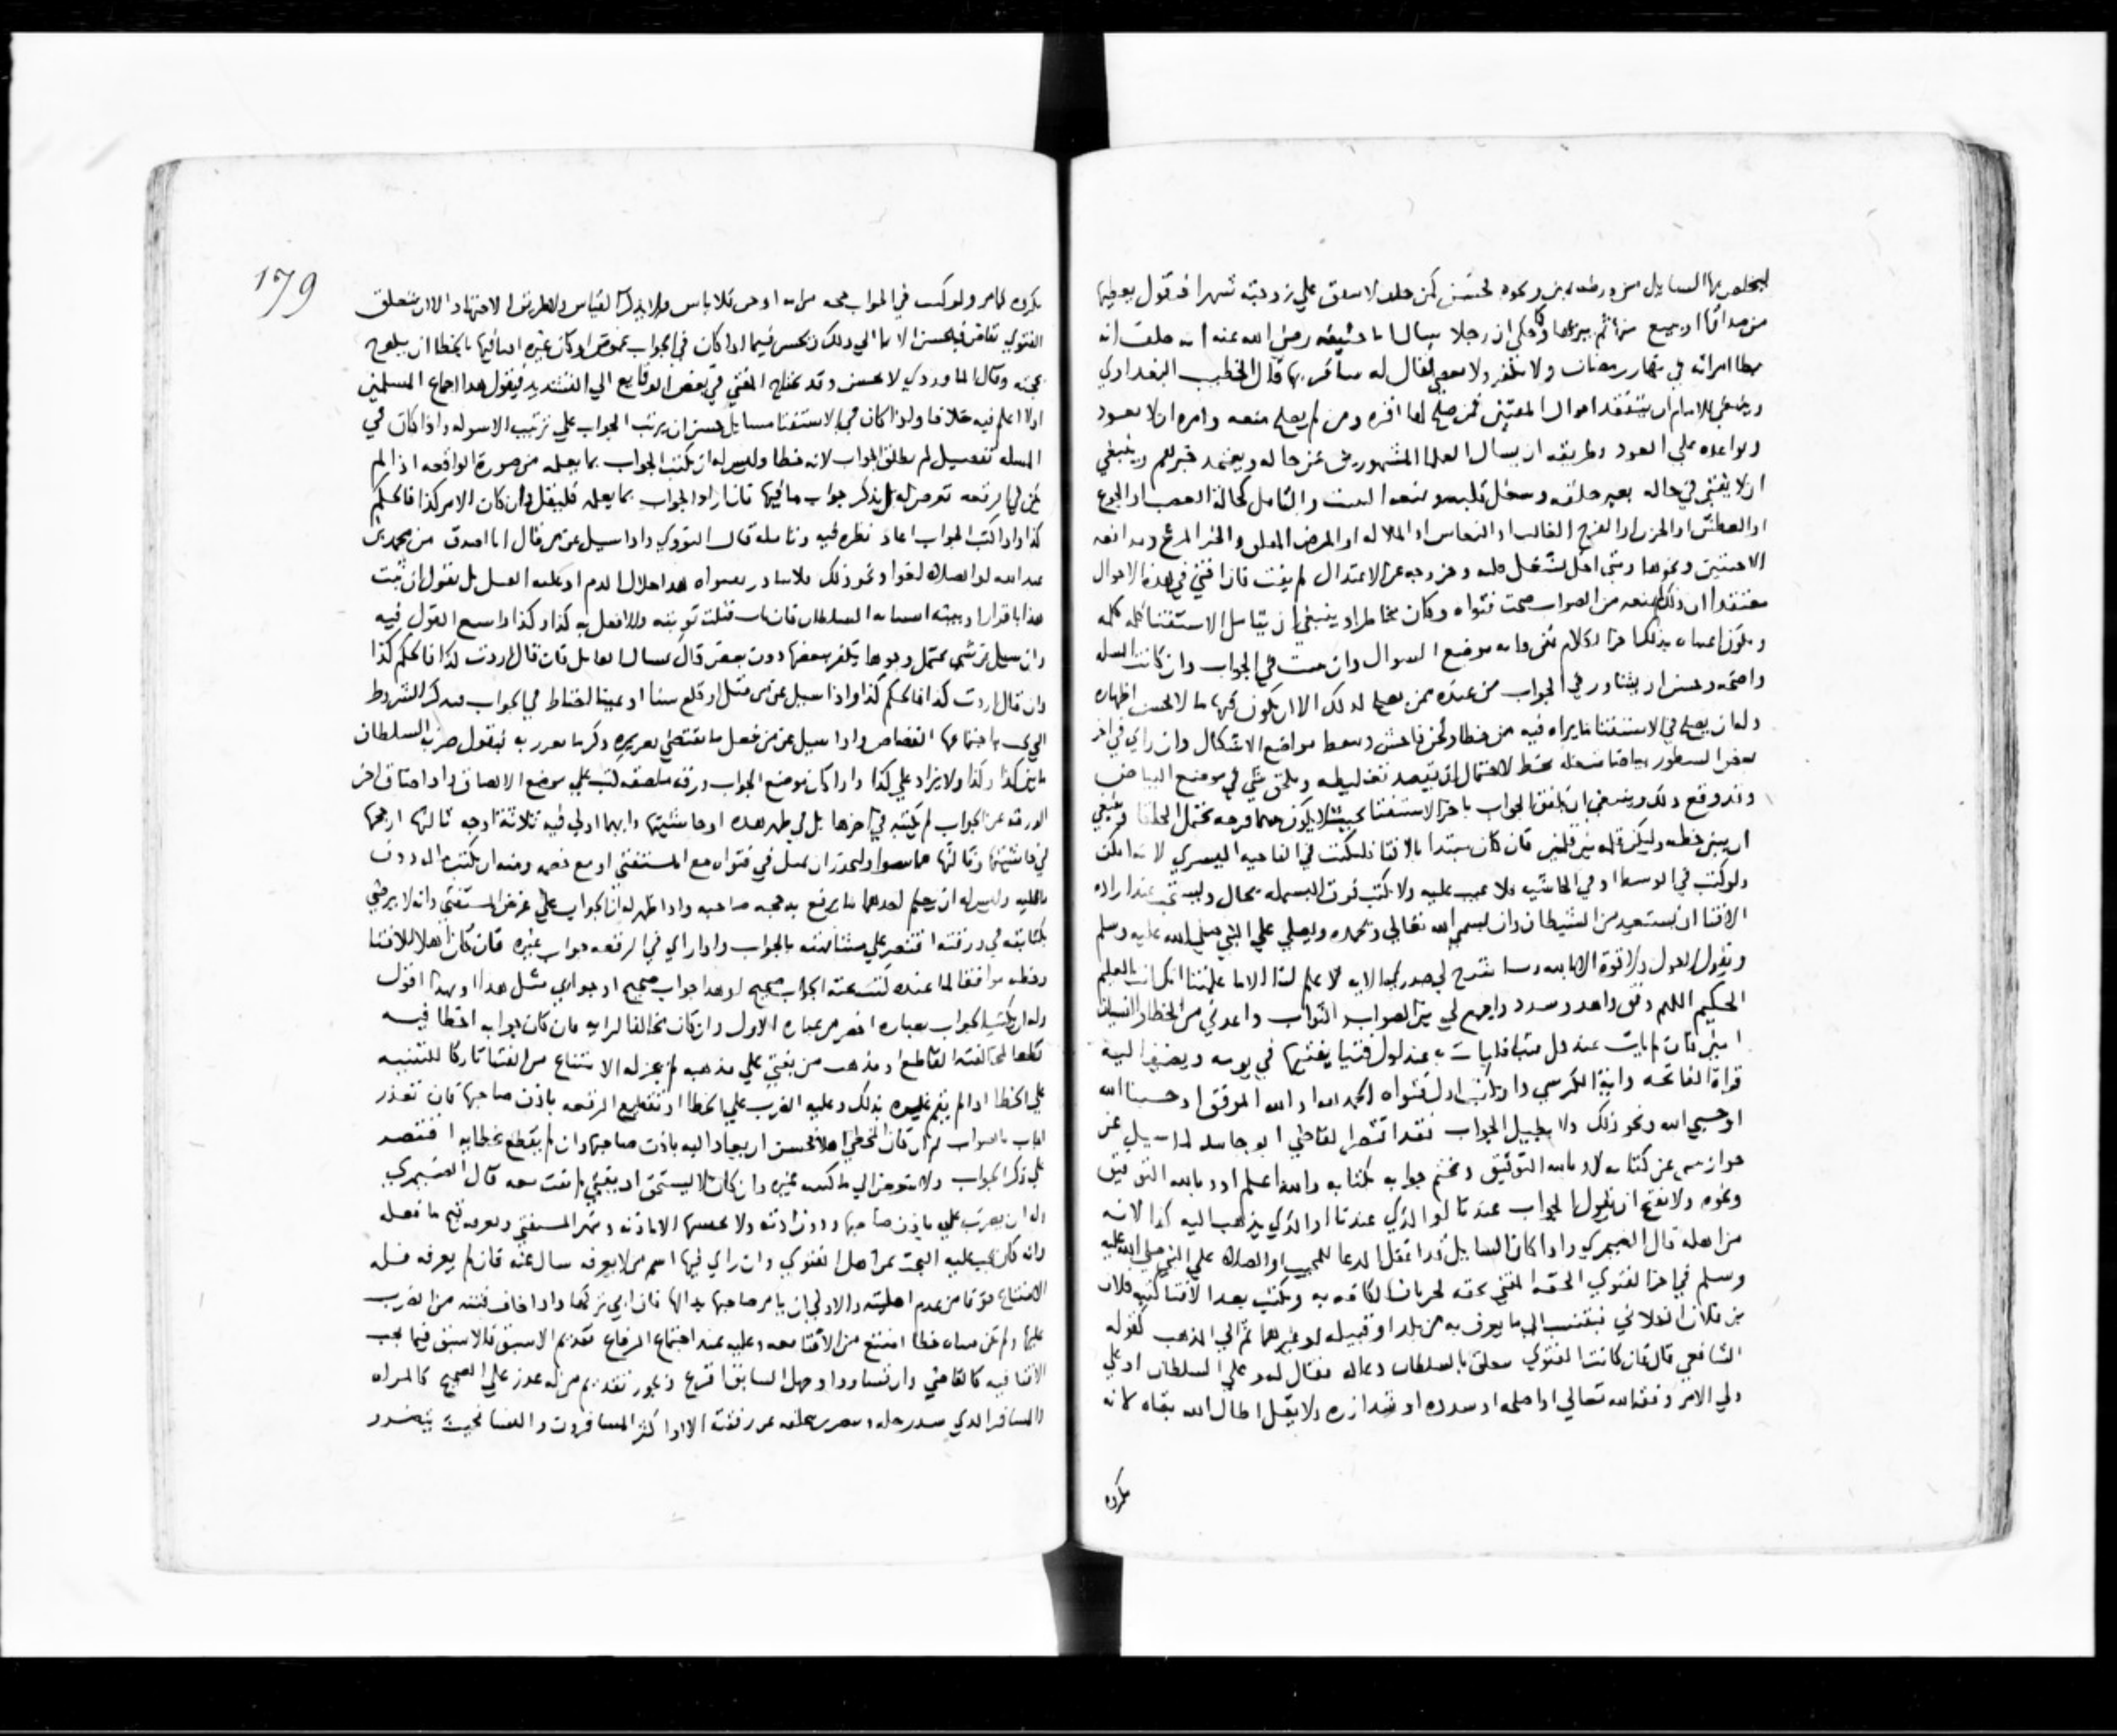 ليخلص بها السايل من ورطة يمين ونحوه فحسن كمن حلف لا ينفق علي زوجته شهرا فنقول يعطيها
من صداقها او يبيع منها ثم يبريها وحكي ان رجلا سال ابا حنيفة رضي الله عنه انه حلف انه
يطا امراته في نهار رمضان ولا يكفر ولا يعصي فقال له سافر بها قال الخطيب البغدادي
وينبغي للامام ان يتفقد احوال المفتين فمن صلح لها اقره ومن لم يصلح منعه وامره ان لا يعود
وتواعده علي العود وطريقه ان يسال العلما المشهورين عن حاله ويعتمد خبرهم وينبغي
ان لا يفتي في حاله تغير خلقه وشغل قلبه ومنعه التثبت والتامل كحالة الغضب او الجوع
او العطش او الحزن او الفرح الغالب او النعاس او الملالة او المرض المقلق والحر المزعج ومدافعة
الاخبثين ونحوها ومتي احس بشغل قلبه وخروجه عن الاعتدال لم يفت فان افتي في هذه الاحوال
معتقدا ان ذلك لم يمنعه من الصواب صحت فتواه وكان مخاطرا وينبغي ان يتامل الاستفتا كله كلمة كلمة
ويكون اعتناه باخر الكلام موضع السوال وان يتثبت في الجواب وان كانت المسلة
واضحة وحسن ان يشاور في الجواب من عنده ممن يصلح لذلك الا ان يكون فيها ما لا يحسن اظهاره
وله ان يصلح في الاستفتا ما يراه فيه من خطا ولحن فاحش ونقط مواضع الاشكال وان راي في اخر
بعض السطور بياضا شغله بخط لاحتمال ان يقصد تغليطه ويلحق شي في موضع البياض
وقد وقع ذلك وينبغي ان يلفق الجواب باخر الاستفتا بحيث لا يكون بينهما فرجة تحتمل الحاقا وينبغي
ان يبين خطه وليكن قلمه بين قلمين فان كان مبتدا بالافتا فليكتب في الناحيه اليسري لانه امكن
ولو كتب في الوسط او في الحاشيه فلا عيب عليه ولا يكتب فوق البسملة بحال ويستحب عند ارادة
الافتا ان يستعيذ من الشيطان وان يسمي الله تعالي ويحمده ويصلي علي النبي صلي الله عليه وسلم
ويقول لا حول ولا قوة الا بالله رب اشرح لي صدري الاية لا علم لنا الا ما علمتنا انك انت العليم
الحكيم اللهم وفق واهد وسدد واجمع لي بين الصواب والثواب واعذني من الخطا والنسيان
امين فان لم يات عند كل فتيا فليات به عند اول فتيا يفتيها في يومه ويضيف اليه
قراة الفاتحه واية الكرسي واذا كتب اول فتواه الحمد لله او الله الموفق او حسبنا الله
او حسبي الله ونحو ذلك ولا يطيل الجواب فقد اقتصر القاضي ابو حامد لما سيل عن
جواز عن كتابه لا وبالله التوفيق ويختم جوابه بكتابه والله اعلم او وبالله التوفيق
ونحوه ولا يقبح ان يقول الجواب عندنا او الذي عندنا او الذي يذهب اليه كذا لانه
من اهله قال الصيمري واذا كان السايل قد اغفل الدعا للمجيب او الصلاة علي النبي صلي الله عليه
وسلم في اخر الفتوي الحقه المفتي بخطه لجريان العادة به ويكتب بعد الافتا كتبه فلان
بن فلان الفلاني فينتسب الي ما يعرف به من بلد او قبيلة او غيرهما ثم الي المذهب كقوله
الشافعي قال فان كانت الفتوي تتعلق بالسلطان دعا له فقال لو علي السلطان او علي
ولي الامر وفقه الله تعالي او اصلحه او سدده او شد ازره ولا يقل اطال الله بقاه لانه
مكروه
179
مكروه كما مر ولو كتب في الجواب حجة من اية او حديث فلا باس ولا يذكر القياس ولا طريق الاجتهاد الا ان يتعلق
الفتوي بقاض فيحسن الايما الي ذلك ويحسن فيما اذا كان في الجواب غموض او كان غيره افتي فيها بالخطا ان يلوح
بحجته وقال الماوردي لا يحسن وقد يحتاج المفتي في بعض الوقايع الي التشديد فيقول هذا اجماع المسلمين
او لا اعلم فيه خلافا واذا كان في الاستفتا مسايل حسن ان يرتب الجواب علي ترتيب الاسولة واذا كان في
المسلة تفصيل لم يطلق الجواب لانه خطا وليس له ان يكتب الجواب بما يعلمه من صورة الواقعه اذا لم
يكن في الرقعه تعرض له بل يذكر جواب ما فيها فان اراد الجواب بما يعلمه فليقل وان كان الامر كذا فالحكم
كذا واذا كتب الجواب اعاد نظره فيه وتامله قال النووي واذا سيل عن من قال انا اصدق من محمد بن
عبد الله او الصلاة لغو او نحو ذلك فلا يبادر بقوله هذا حلال الدم او عليه القتل بل يقول ان ثبت
هذا باقراره او بينه استتابه السلطان فان تاب قبلت توبته والا فعل به كذا وكذا واشبع القول فيه
وان سيل عن شي يحتمل وجوها يكفر ببعضها دون بعض قال يسال القايل فان قال اردت كذا فالحكم كذا
وان قال اردت كذا فالحكم كذا واذا سيل عن من قتل او قلع سنا او عينا احتاط في الجواب فيذكر الشروط
التي يجب باجتماعها القصاص واذا سيل عن من فعل ما يقتضي تعزيره ذكر ما يعزر به فيقول ضربه السلطان
ما بين كذا وكذا ولا يزاد علي كذا واذا كان موضع الجواب ورقة ملصقه كتب علي موضع الالصاق واذا ضاق اخر
الورقه عن الجواب لم يكتبه في اخرها بل في ظهر هذه او حاشيتها وايهما اولي فيه ثلاثة اوجه ثالثها ارجحها
في حاشيتها وثالثها هما سوا وليحذر ان يميل في فتواه مع المستفتي او مع خصمه ومنه ان يكتب ما له دون
ما عليه وليس له ان يعلم احدهما ما يدفع به حجة صاحبه واذا ظهر له ان الجواب علي غرض المستفتي وانه لا يرضي
بكتابته في ورقته اقتصر علي مشافهته بالجواب واذا راي في الرقعه جواب غيره فان كان اهلا للافتا
وخطه موافقا لما عنده كتب تحته الجواب صحيح او هذا جواب صحيح او جوابي مثل هذا او بهذا اقول
وله ان يكتب الجواب بعبارة اخصر من عبارة الاول وان كان مخالفا لرايه فان كان جوابه اخطا فيه
قطعا لمخالفته القاطع او مذهب من يفتي علي مذهبه لم يجز له الامتناع من الفتيا تاركا للتنبيه
علي الخطا اذا لم يقم غيره بذلك وعليه الضرب علي الخطا او تقطيع الرقعه باذن صاحبها فان تعذر
اجاب بالصواب ثم ان كان المخطي اهلا فحسن ان يعاد اليه باذن صاحبها وان لم يقطع بخطايه اقتصر
علي ذكر الجواب ولا يتعرض الي ما كتبه غيره وان كان لا يستحق ان يفتي لم يفت معه قال الصيمري
وله ان يضرب علي باذن صاحبها ودون اذنه ولا يحبسها الا باذنه ونهر المستفتي وتعريفه قبح ما فعله
وانه كان يجب عليه البحث عن اهل الفتوي وان راي فيها اسم من لا يعرفه سال عنه فان لم يعرفه فله
الامتناع خوفا من عدم اهليته والاولي ان يامر صاحبها بابدالها فان ابي تركها واذا خاف فتنة من الضرب
عليها ولم تكن فتياه خطا امتنع من الافتا معه وعليه عند اجتماع الرقاع تقديم الاسبق فالاسبق فيما يجب
الافتا فيه كالقاضي وان تساووا او جهل السابق اقرع ويجوز تقديم من له عذر علي الصحيح كالمراه
والمسافر الذي شد رحله وتضرر بتخلفه عن رفقته الا اذا كثر المسافرون والنسا بحيث يتضرر